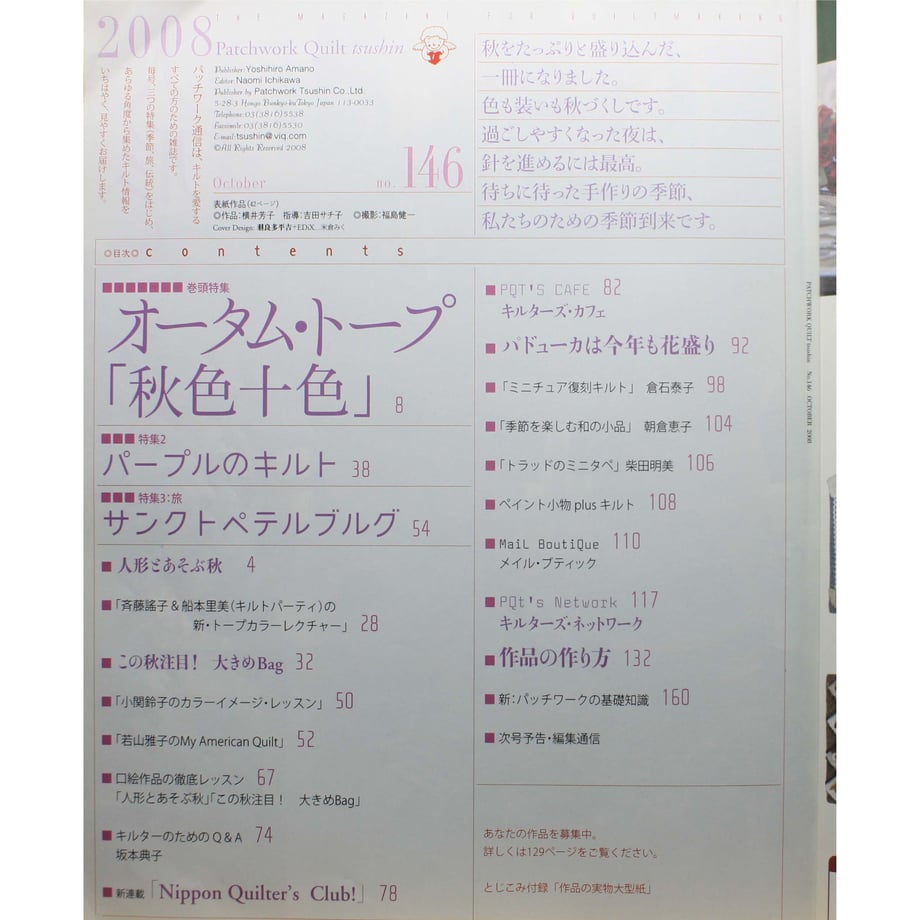 THE MAGAZINE FOR QUILTMAKERS
2008 Patchwork Quilt tsushin
Publisher: Yoshihiro Amano
Editor: Naomi Ichikawa
Publisher by Patchwork Tsushin Co., Ltd.
5-28-3 Hongo Bunkyo-ku Tokyo Japan 113-0033
Telephone: 03(3816)5538
Facsimile: 03(3816)5530
E-mail: tsushin@viq.com
©All Rights Reserved 2008
October no. 146
パッチワーク通信は、キルトを愛する
すべての方のための雑誌です。
毎号、三つの特集(季節、旅、伝統)をはじめ、
あらゆる角度から集めたキルト情報を
いちはやく、見やすくお届けします。
表紙作品(42ページ)
◎作品:横井芳子 指導:吉田サチ子 ◎撮影:福島健一
Cover Design: 羽良多平吉+EDiX…米倉みく
秋をたっぷりと盛り込んだ、
一冊になりました。
色も装いも秋づくしです。
過ごしやすくなった夜は、
針を進めるには最高。
待ちに待った手作りの季節、
私たちのための季節到来です。
◎目次◎ contents
■■■■■■■ 巻頭特集
オータム・トープ
「秋色十色」 8
■■■ 特集2
パープルのキルト 38
■■■ 特集3:旅
サンクトペテルブルグ 54
■ 人形とあそぶ秋 4
■「斉藤謠子&船本里美(キルトパーティ)の
新・トープカラーレクチャー」 28
■ この秋注目! 大きめBag 32
■「小関鈴子のカラーイメージ・レッスン」 50
■「若山雅子のMy American Quilt」 52
■ 口絵作品の徹底レッスン 67
「人形とあそぶ秋」「この秋注目! 大きめBag」
■ キルターのための Q&A 74
坂本典子
■ 新連載「Nippon Quilter's Club!」 78
■ PQT'S CAFE 82
キルターズ・カフェ
■ パドューカは今年も花盛り 92
■「ミニチュア復刻キルト」 倉石泰子 98
■「季節を楽しむ和の小品」 朝倉恵子 104
■「トラッドのミニタペ」柴田明美 106
■ ペイント小物 plus キルト 108
■ MaiL BoutiQue 110
メイル・ブティック
■ PQt's Network 117
キルターズ・ネットワーク
■ 作品の作り方 132
■ 新:パッチワークの基礎知識 160
■ 次号予告・編集通信
あなたの作品を募集中。
詳しくは129ページをご覧ください。
とじこみ付録「作品の実物大型紙」
PATCHWORK QUILT tsushin No.146 OCTOBER 2008